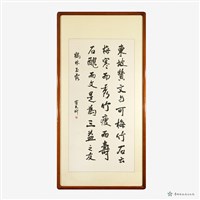 東坡贊文與可梅竹石云
梅寒而秀竹瘦而壽
石醜而文是為三益之友
鶴林玉露